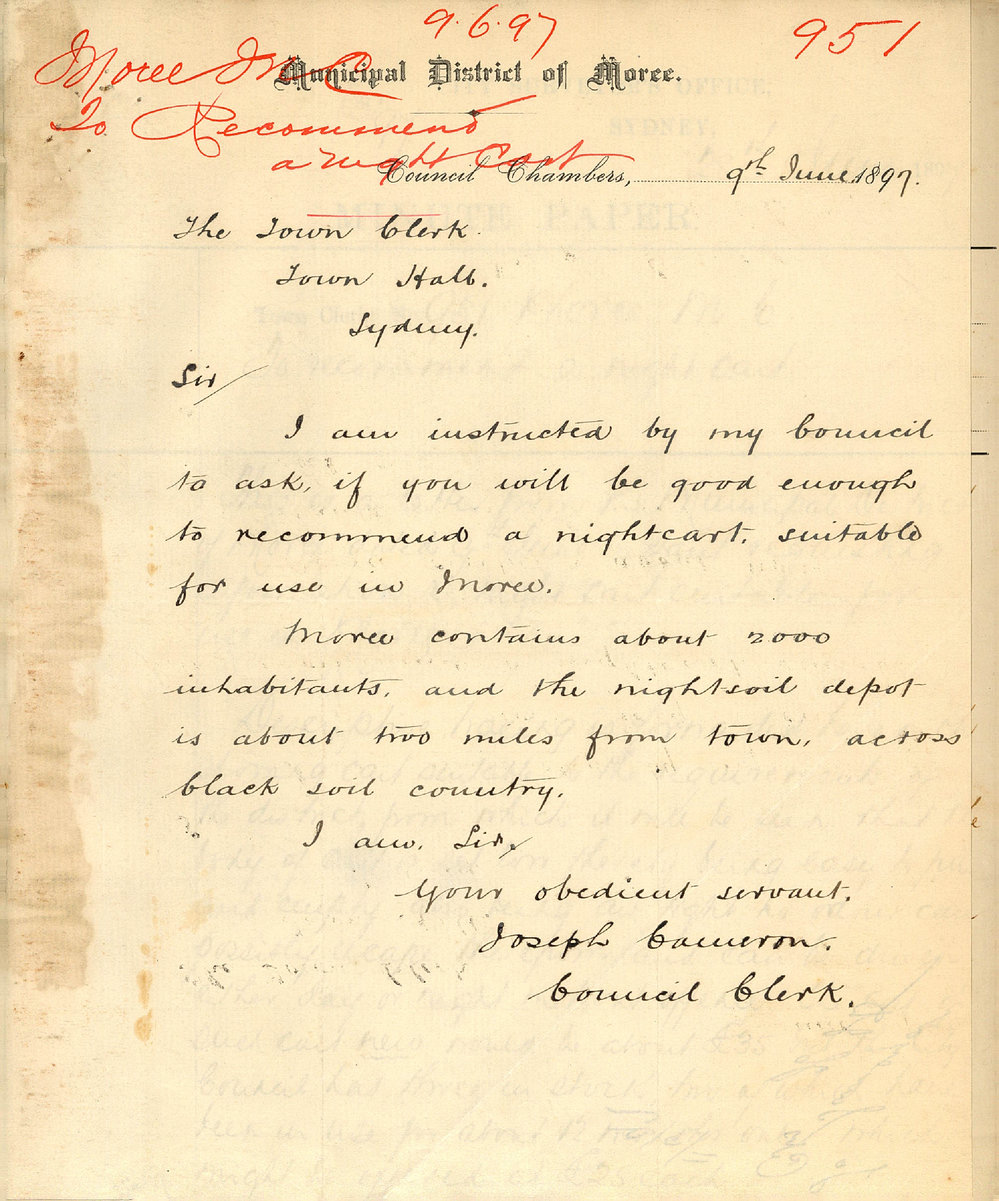 9.6.97
951
Moree M.C.
Municipal District of Moree.
To Recommend
a night Cart
Council Chambers, 9th June 1897.
The Town Clerk.
Town Hall.
Sydney.
Sir/
I am instructed by my Council
to ask, if you will be good enough
to recommend a nightcart, suitable
for use in Moree.
Moree contains about 2000
inhabitants, and the nightsoil depot
is about two miles from town, across
black soil country.
I am, Sir,
Your obedient servant.
Joseph Cameron.
Council Clerk.